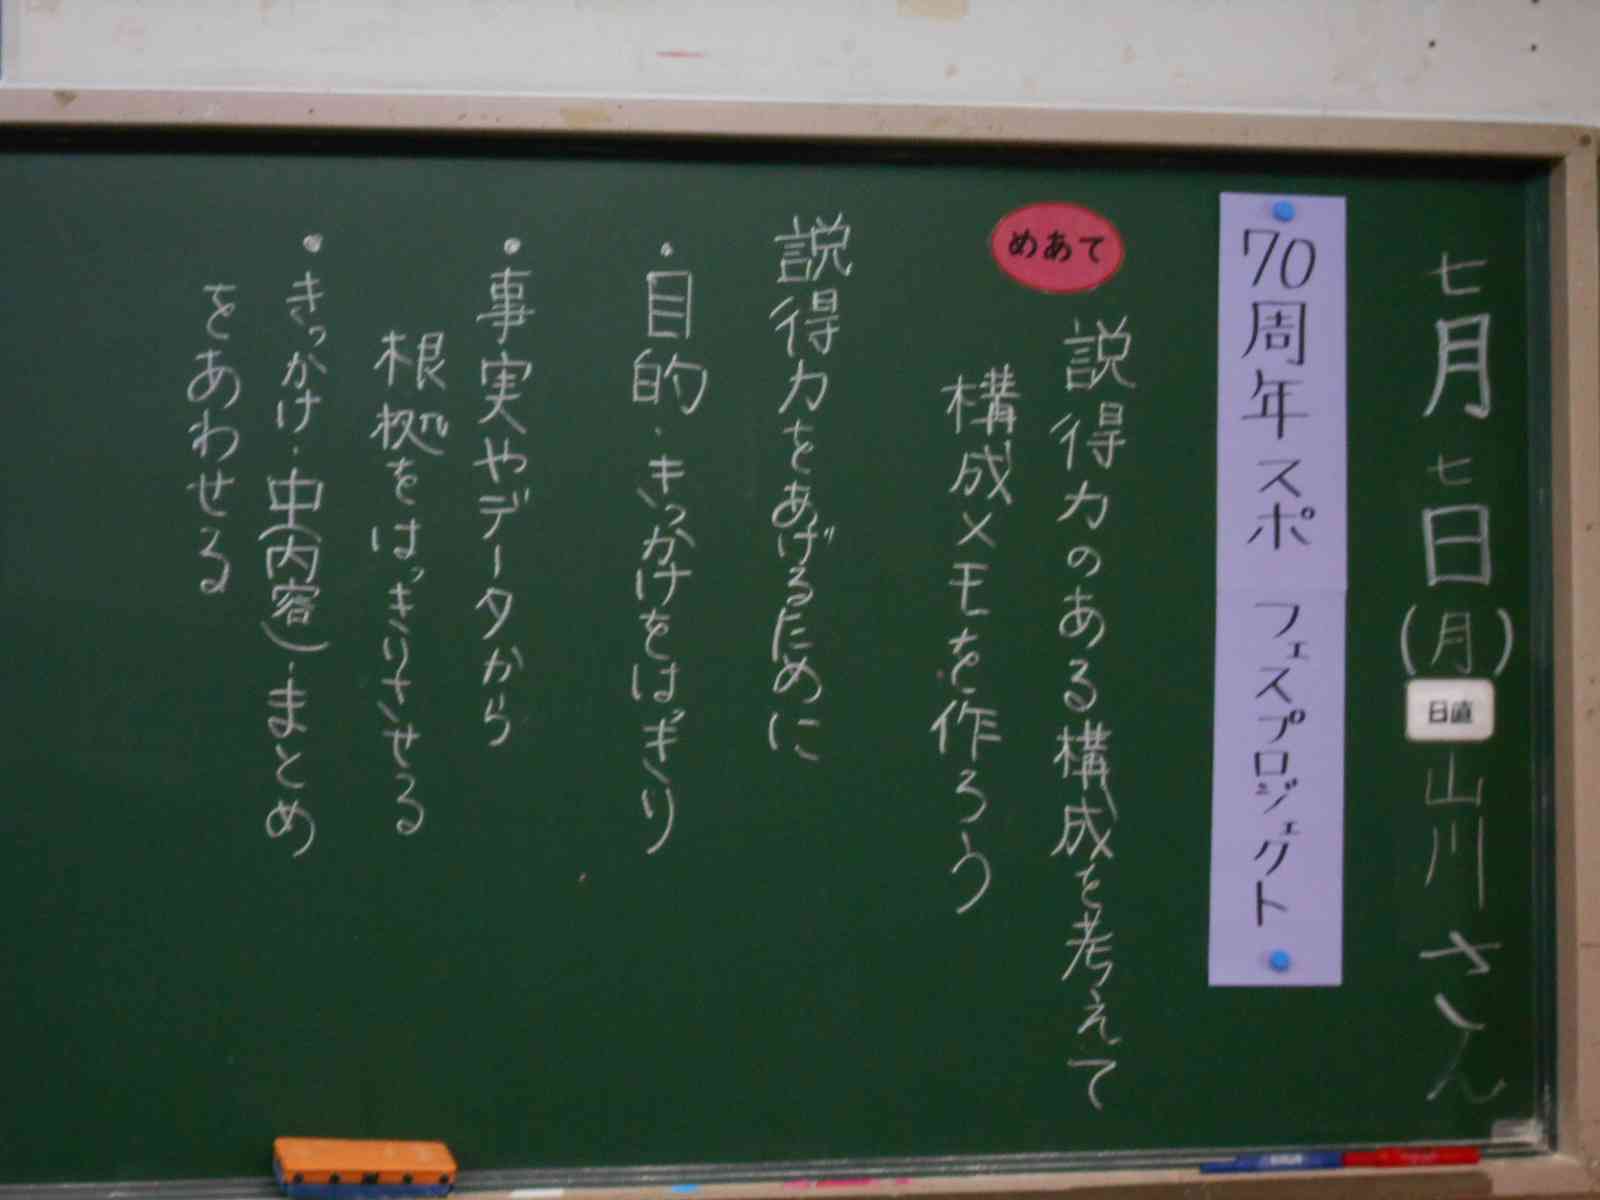 七月七日(月)日直 山川さん
70周年スポ フェスプロジェクト
めあて
説得力のある構成を考えて
構成メモを作ろう
説得力をあげるために
・目的・きっかけをはっきり
・事実やデータから
根拠をはっきりさせる
・きっかけ・中(内容)・まとめ
をあわせる